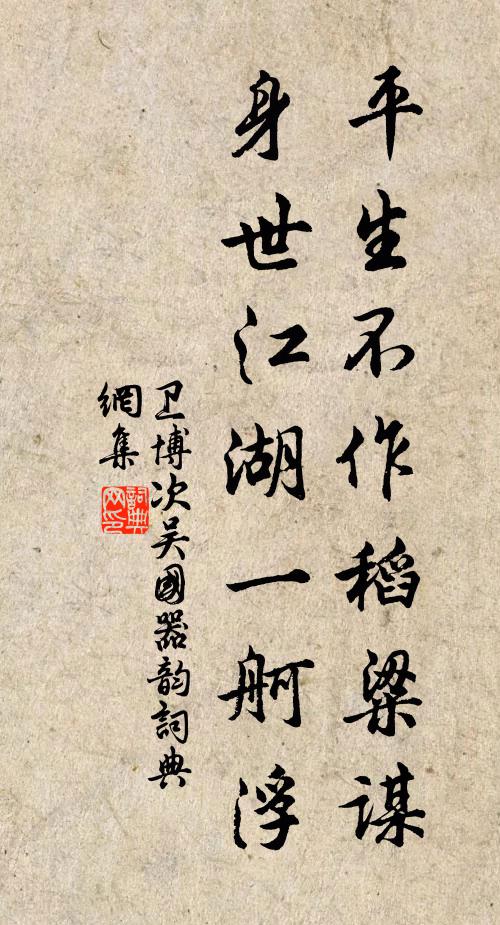 平生不作稻粱謀
身世江湖一舸浮
卫博次吴國器韵詞典
網集
詞典
网印